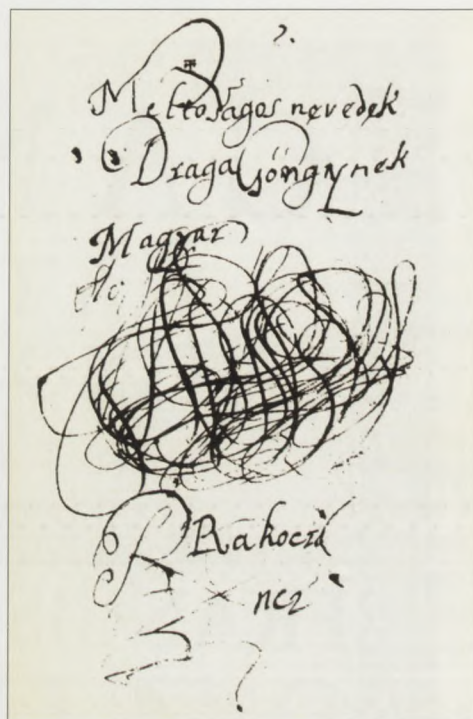 2.
Meltosagos nevedek
Draga gyöngynek
Magyar
Rakoczi
ncz